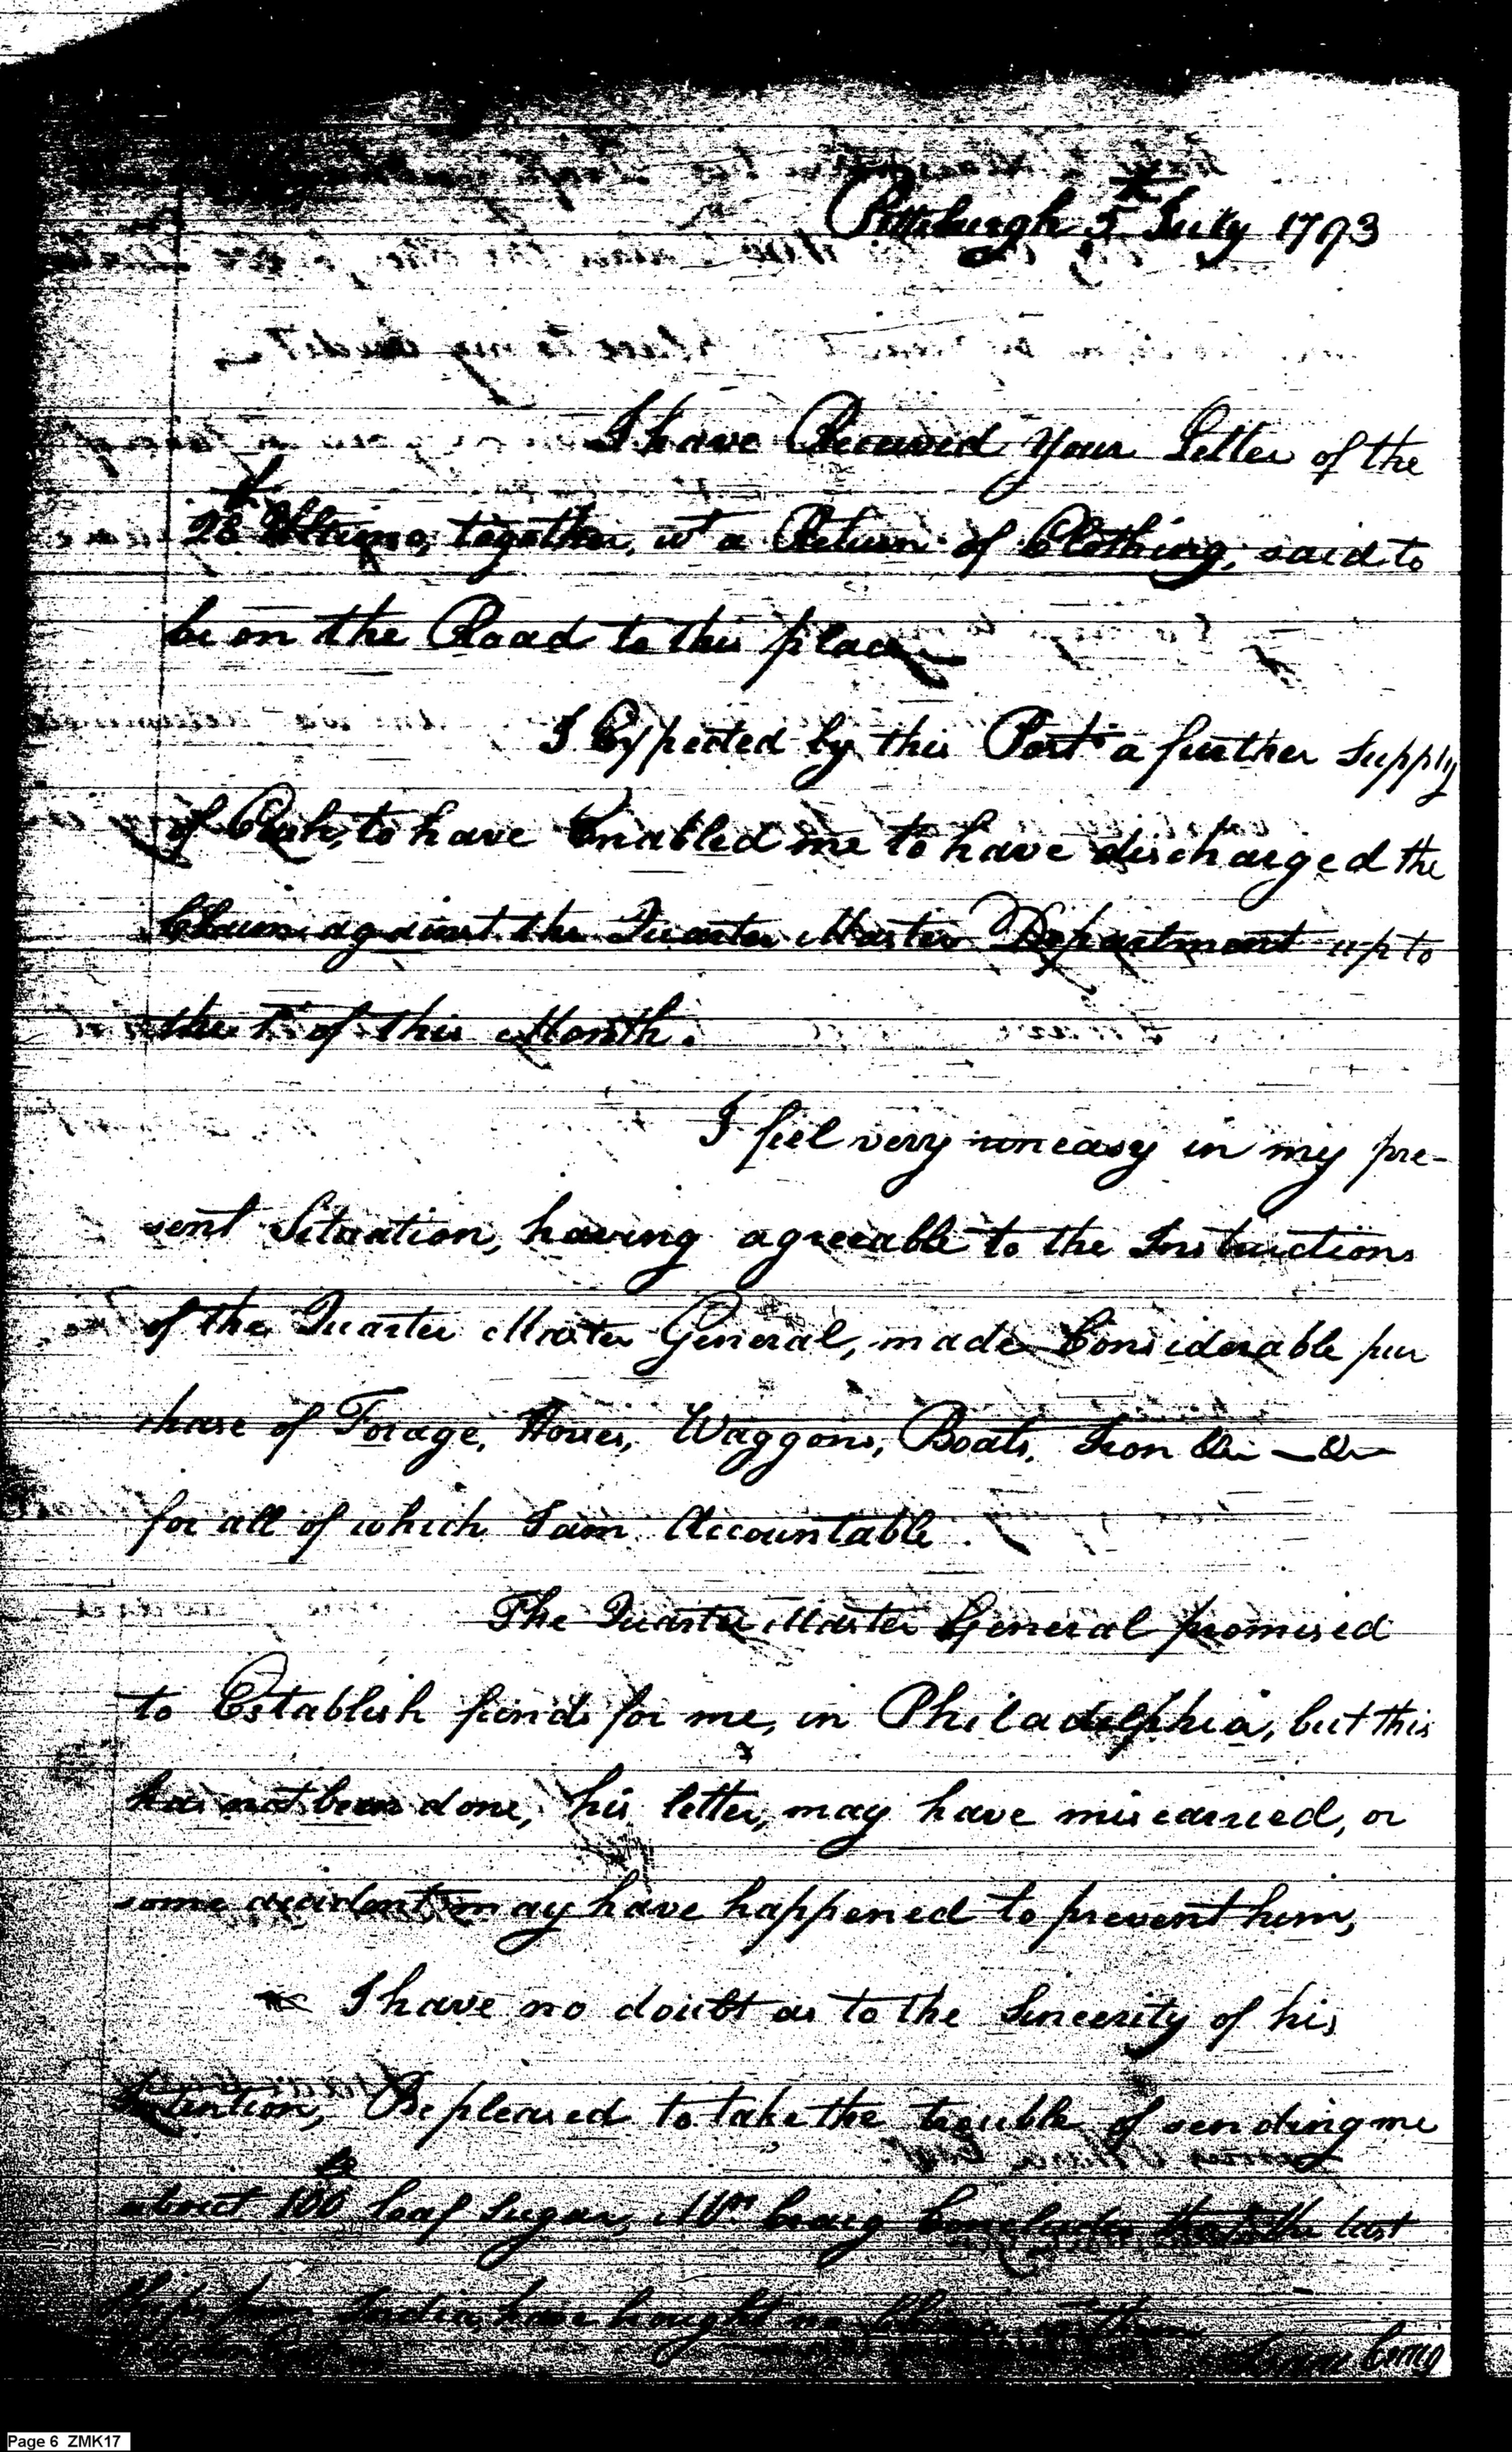 Pittsburgh 5th July 1793
I have Received your Letter of the
28th Ultimo, together, wt a Return of Clothing, said to
be on the Road to this place
I Expected by this Post a further Supply
of Cash, to have Enabled me to have discharged the
Claims against the Quarter Master Department up to
the 1st of this Month.
I feel very uneasy in my pre-
sent Situation, having agreeable to the Instructions
of the Quarter Master General, made Considerable pur
chase of Forage, Horses, Waggons, Boats, Iron &c — &c
for all of which I am Accountable.
The Quarter Master General promised
to Establish funds for me, in Philadelphia, but this
has not been done, his letter, may have miscarried, or
some accident may have happened to prevent him,
I have no doubt as to the Sincerity of his
Intention, Be pleased to take the trouble of sending me
about 100 lb loaf Sugar, Mrs Craig Concludes that the last
Ships from India, have brought no
Isaac Craig
Page 6 ZMK17